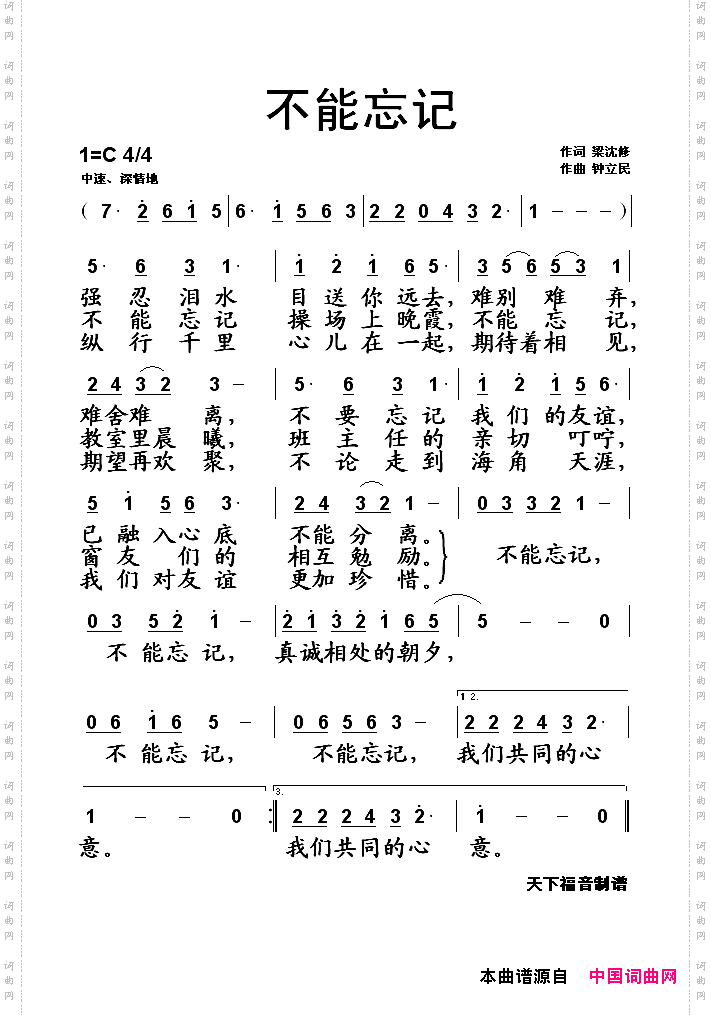 不能忘记
1=C 4/4
作词 梁沈修
中速、深情地
作曲 钟立民
( 7· 2 6 1 5 | 6· 1 5 6 3 | 2 2 0 4 3 2· | 1 - - - )
5· 6 3 1· | 1 2 1 6 5· | 3 5 6 5 3 1
强忍泪水 目送你远去, 难别难弃,
不能忘记 操场上晚霞, 不能忘记,
纵行千里 心儿在一起, 期待着相见,
2 4 3 2 3 - | 5· 6 3 1· | 1 2 1 5 6·
难舍难离, 不要忘记 我们的友谊,
教室里晨曦, 班主任的 亲切叮咛,
期望再欢聚, 不论走到 海角天涯,
5 1 5 6 3· | 2 4 3 2 1 - | 0 3 3 2 1 -
已融入心底 不能分离。
窗友们的 相互勉励。 不能忘记,
我们对友谊 更加珍惜。
0 3 5 2 1 - | 2 1 3 2 1 6 5 | 5 - - 0
不能忘记, 真诚相处的朝夕,
1 2.
0 6 1 6 5 - | 0 6 5 6 3 - | 2 2 2 4 3 2·
不能忘记, 不能忘记, 我们共同的心
3.
1 - - 0 :‖ 2 2 2 4 3 2· | 1 - - 0 ‖
意。 我们共同的心 意。
天下福音制谱
本曲谱源自 中国词曲网
词曲网